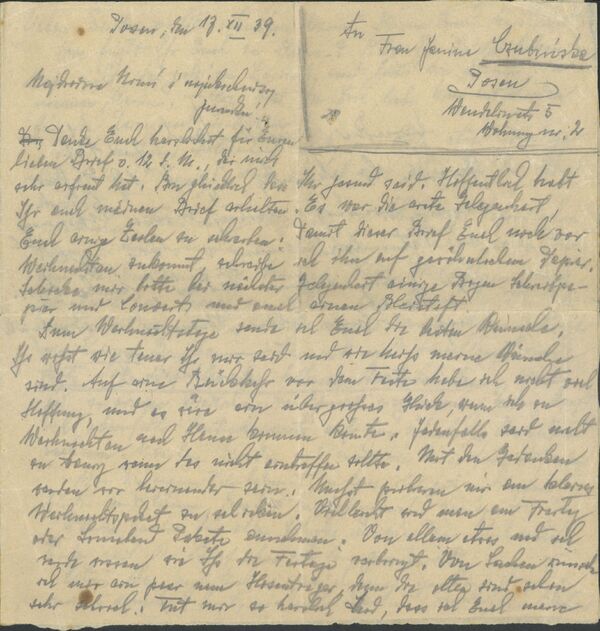 Posen, den 17. XII 39.
An
Frau Janine Czubińska
Posen
5
Wohnung nr. 2
Najdroższa i najukochańszy
Danke Euch herzlichst für Euren
lieben Brief v. 12 d. M., der mich
sehr erfreut hat. Bin glücklich dass Ihr gesund seid. Hoffentlich habt
Ihr auch meinen Brief erhalten. Es war die erste Gelegenheit,
Euch einige Zeilen zu schreiben. Damit dieser Brief Euch noch vor
Weihnachten zukommt schreibe ich ihn auf gewöhnlichem Papier.
Schicke mir bitte bei nächster Gelegenheit einige Bogen Schreibpa-
pier und Couverts und auch einen Bleistift.
Zum Weihnachtsfeste sende ich Euch die besten Wünsche.
Ihr wisst wie teuer Ihr mir seid und wie heiss meine Wünsche
sind. Auf eine Rückkehr vor dem Feste habe ich nicht viel
Hoffnung, und es wäre ein übergrosses Glück, wenn ich zu
Weihnachten nach Hause kommen könnte. Jedenfalls seid nicht
zu traurig wenn das nicht eintreffen sollte. Mit den Gedanken
werden wir beieinander sein. mir ein kleines
Weihnachtspaket zu schicken. Vielleicht wird man am Freitag
oder Sonnabend Pakete annehmen. Von allem etwas und ich
werde wissen wie Ihr die Feiertage verbringt. Von Sachen wünsche
ich mir ein paar neue Hosenträger, denn die alten sind schon
sehr schwach. Tut mir so herzlich Leid, dass ich Euch meine